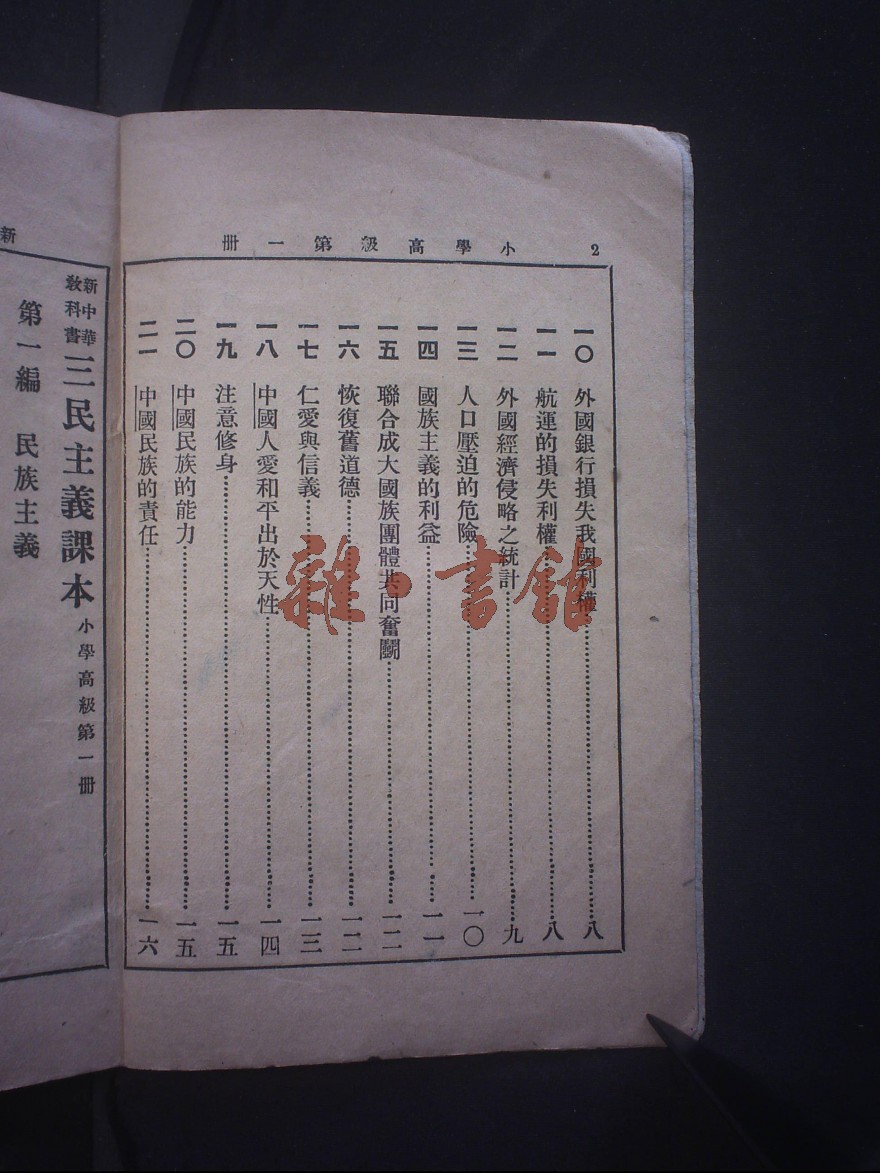 2 小學高級第一冊
一〇 外國銀行損失我國利權……八
一一 航運的損失利權……八
一二 外國經濟侵略之統計……九
一三 人口壓迫的危險……一〇
一四 國族主義的利益……一一
一五 聯合成大國族團體共同奮鬭……一二
一六 恢復舊道德……一二
一七 仁愛與信義……一三
一八 中國人愛和平出於天性……一四
一九 注意修身……一五
二〇 中國民族的能力……一五
二一 中國民族的責任……一六
新中華教科書 三民主義課本 小學高級第一冊
第一編 民族主義
新
雜·書館